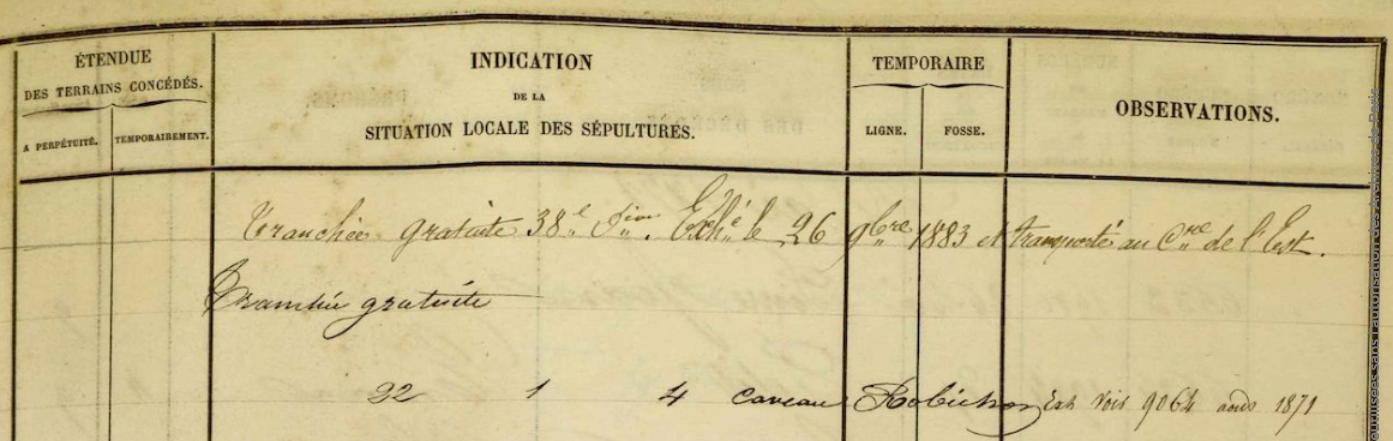 ÉTENDUE
DES TERRAINS CONCÉDÉS.
A PERPÉTUITÉ. TEMPORAIREMENT.
INDICATION
DE LA
SITUATION LOCALE DES SÉPULTURES.
TEMPORAIRE
LIGNE. FOSSE.
OBSERVATIONS.
Tranchée gratuite 38e Divon. Exhé le 26 9bre 1883 et transporté au Cre de l'Est.
Tranchée gratuite
32 1 4 caveau Robichon Exh Voir 9064 août 1871
sans l'autorisation des Archives de Paris